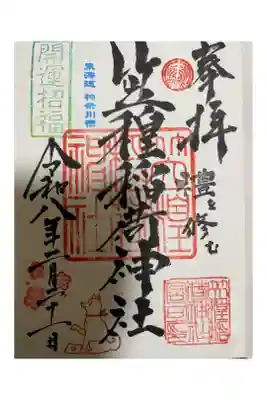 奉拝
禮を修む
笠䅣稲荷神社
東海道 神奈川宿
開運招福
令和八年二月二十一日